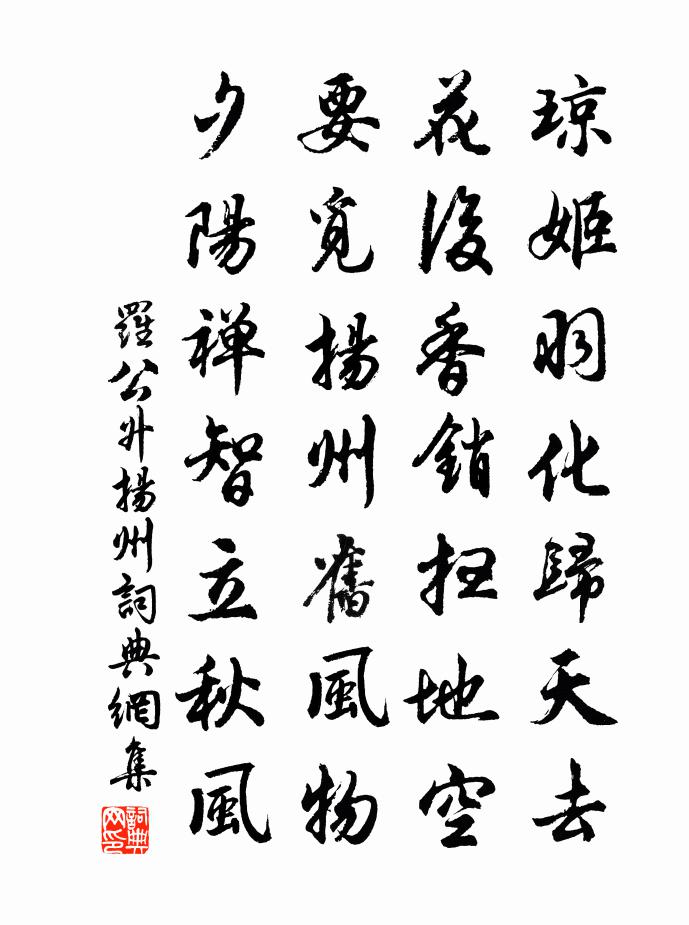 琼姬羽化歸天去
花後香銷抂地空
要覓揚州舊風物
夕陽禅智立秋風
羅公升揚州詞典網集
詞典网印